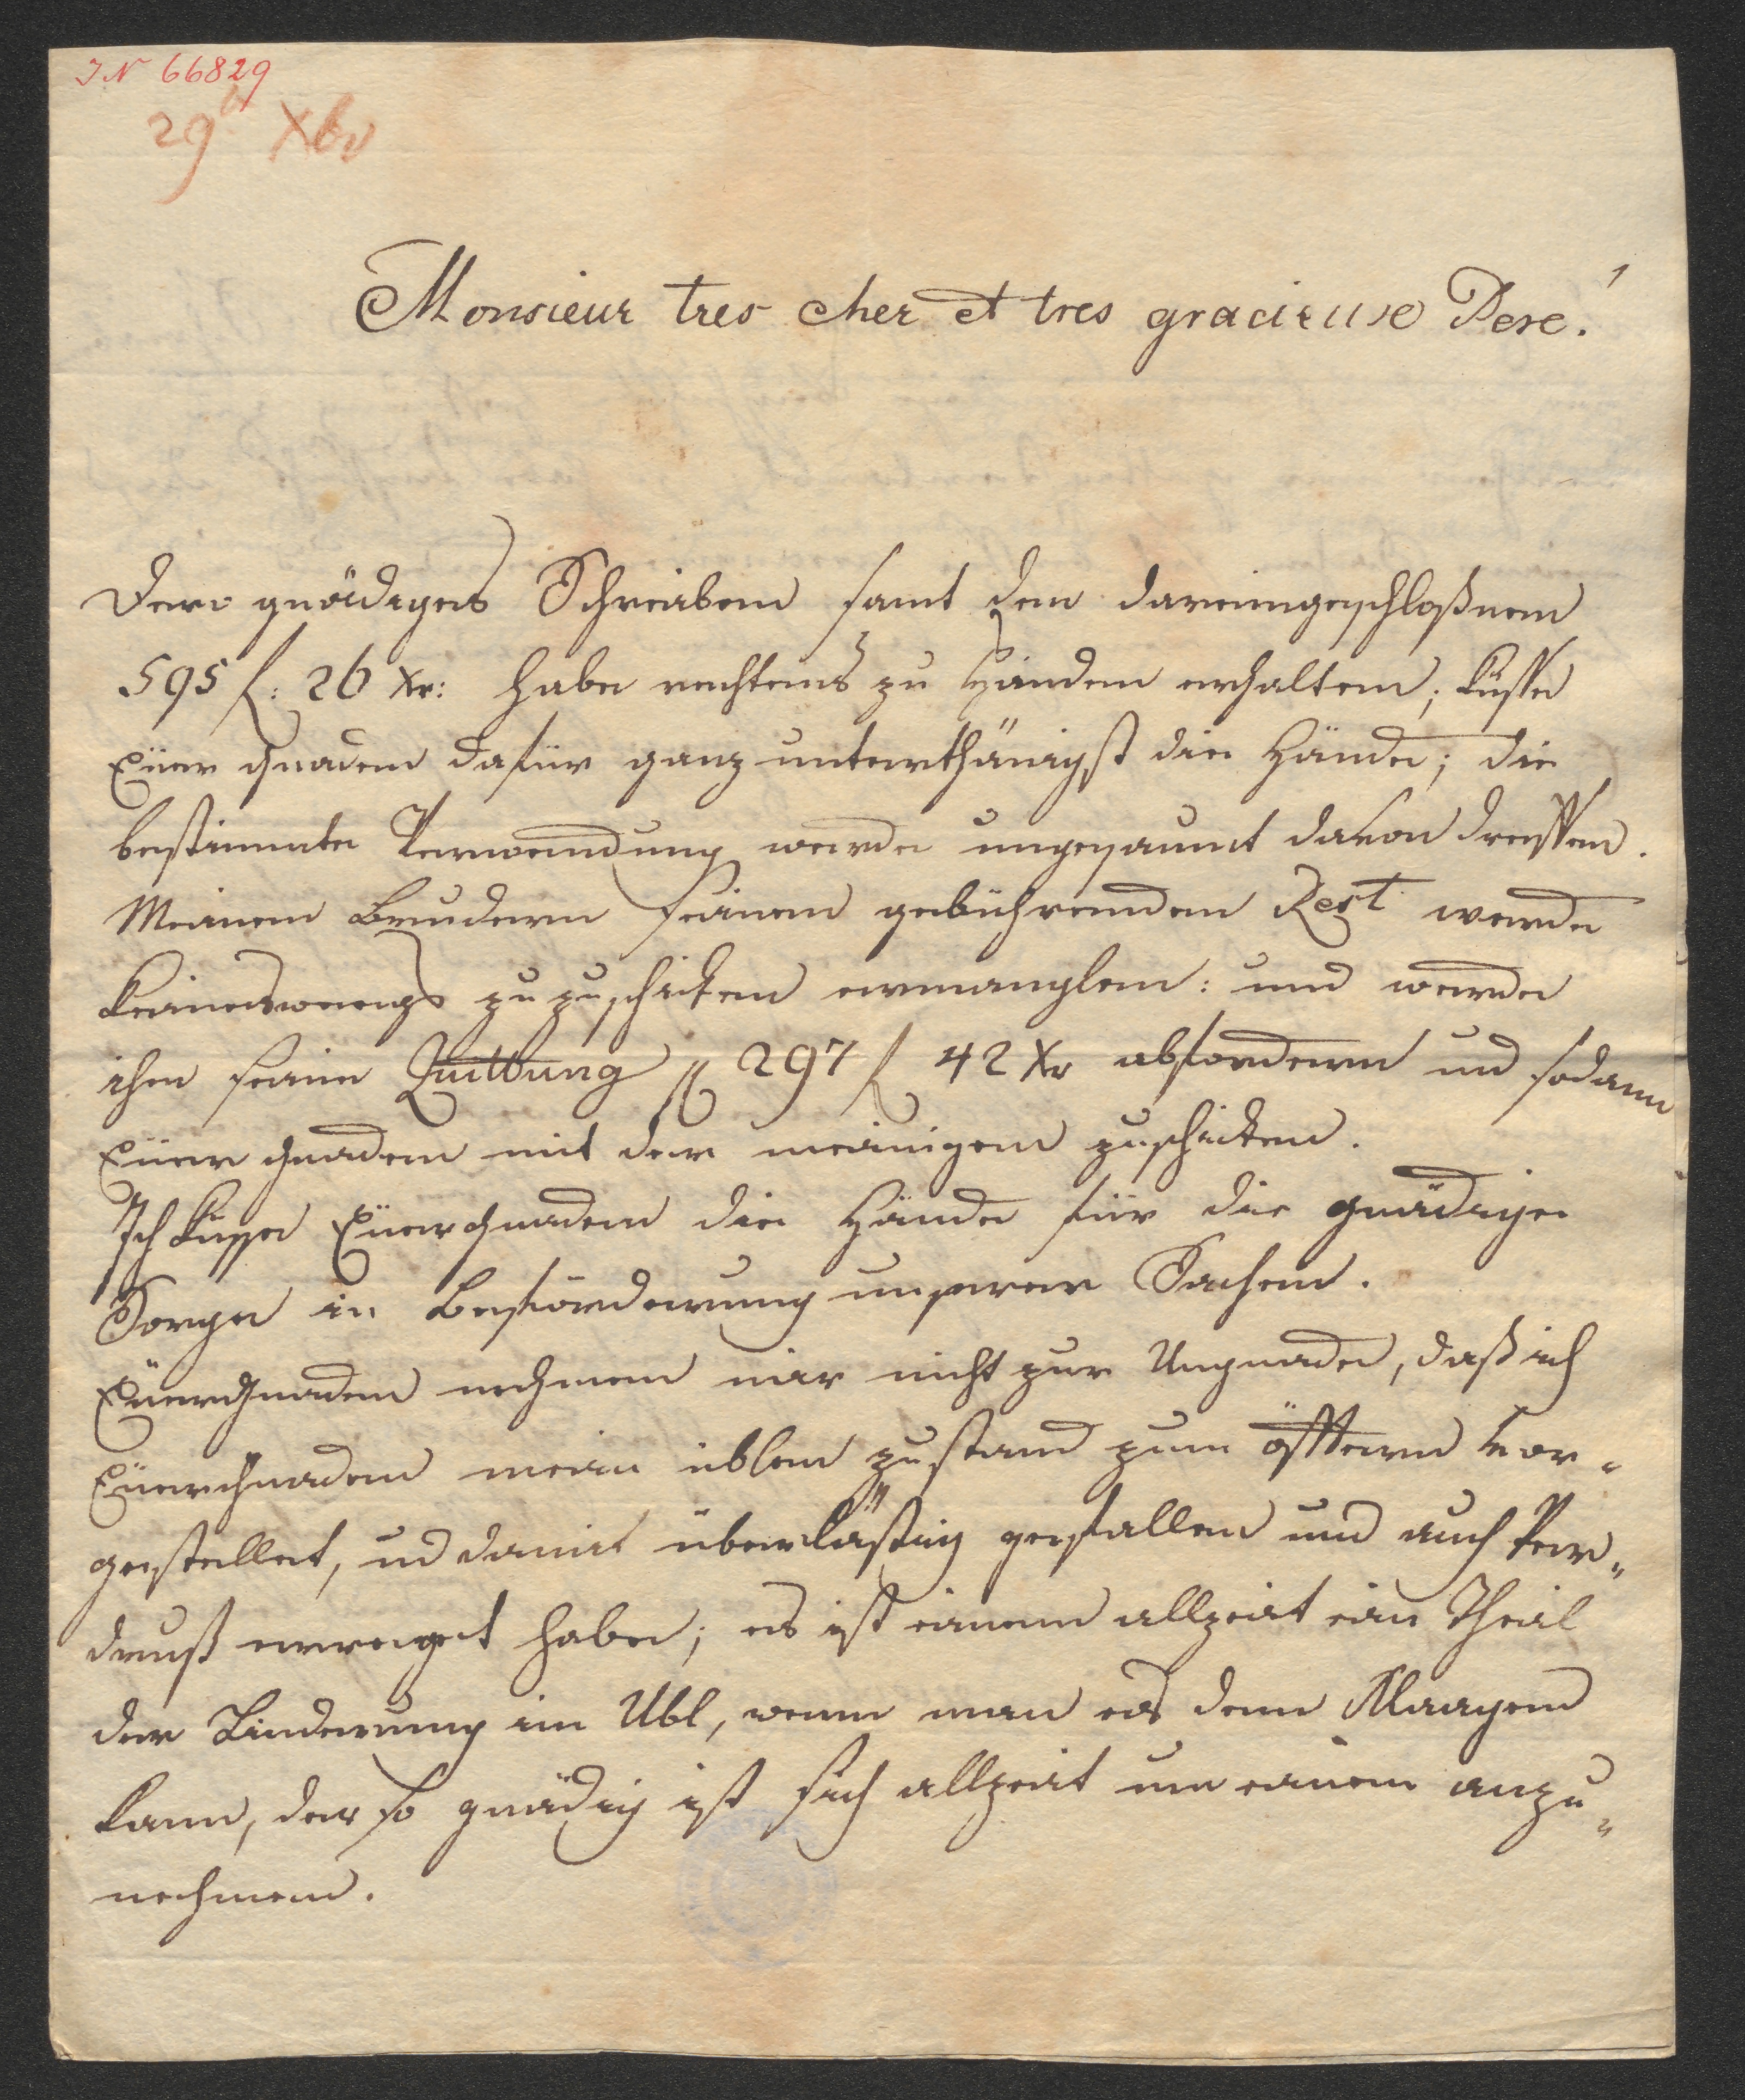 IN 66829
29 Xbr
Monsieur tres cher et tres gracieuse Pere!
Dero gnädiges Schreiben samt den dareingeschloßnen
595 f: 26 Xr: habe rechtens zu Handen erhalten; küsse
Euer Gnaden dafür ganz unterthänigst die Hände; die
bestimmte Verwendung werde ungesaumt davon dreffen.
Meinem Brudern seinen gebührenden Rest werde
keinesweegs zuzuschicken ermanglen: und werde
ihm seine Quittung 297 f 42 Xr abfordern und sodann
Euer Gnaden mit der meinigen zuschicken.
Ich küsse Euer Gnaden die Hände für die gnädige
Sorge in Beförderung unserer Sachen.
Euer Gnaden nehmen mir nicht zur Ungnade, daß ich
Euer Gnaden mein üblen zustand zum öfftern vor-
gestellet, und damit überlästig gefallen und auch Ver-
druß erreget habe; es ist einem allzeit ein Theil
der Linderung im Übl, wenn man es dem Klaagen
kann, der so gnädig ist sich allzeit um einem anzu-
nehmen.